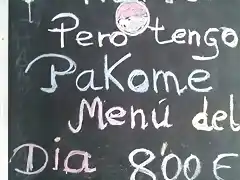 Pero tengo
PaKome
Menú del
Dia 8'00 €